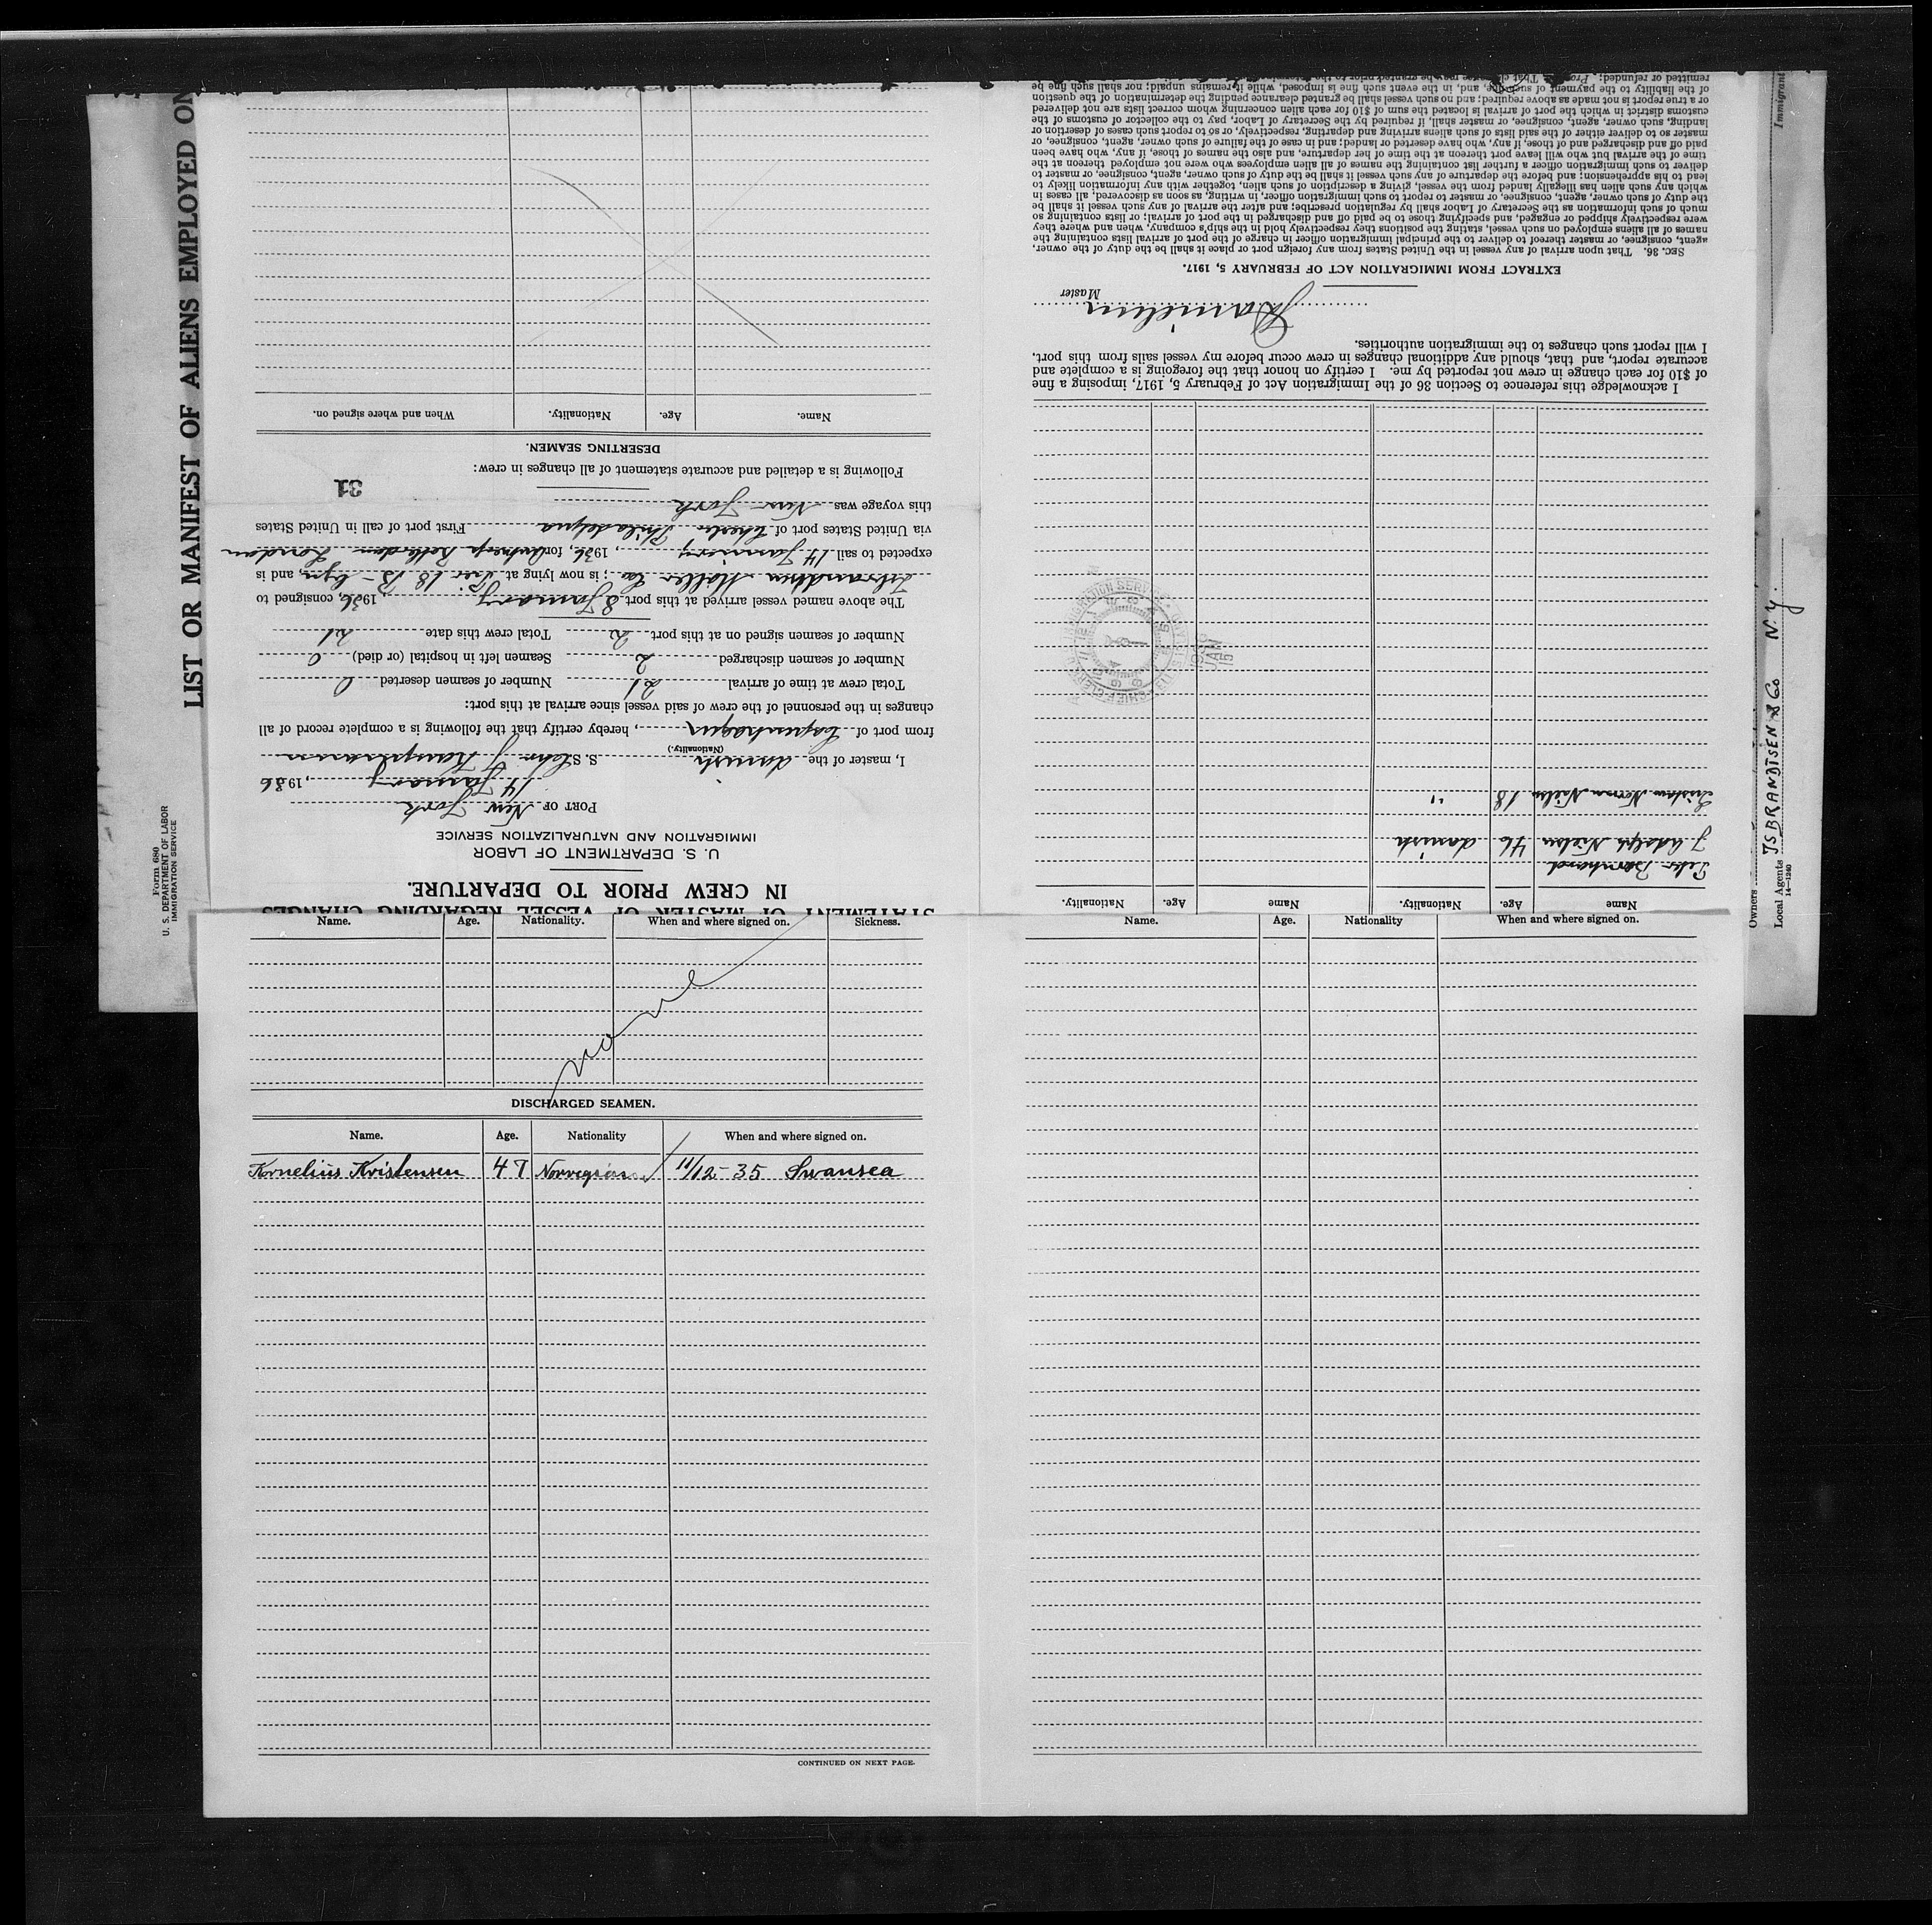 LIST OR MANIFEST OF ALIENS EMPLOYED ON
Form 680
U. S. DEPARTMENT OF LABOR
IMMIGRATION SERVICE
STATEMENT OF MASTER OF VESSEL REGARDING CHANGES
IN CREW PRIOR TO DEPARTURE.
U. S. DEPARTMENT OF LABOR
IMMIGRATION AND NATURALIZATION SERVICE
PORT OF New York
14 January, 1936
I, master of the danish S. S.
(Nationality.)
from port of Copenhagen, hereby certify that the following is a complete record of all
changes in the personnel of the crew of said vessel since arrival at this port:
Total crew at time of arrival 21 Number of seamen deserted 0
Number of seamen discharged 2 Seamen left in hospital (or died) 0
Number of seamen signed on at this port 2 Total crew this date 21
The above named vessel arrived at this port 8 January, 1936, consigned to
Isbrandtsen Möller Co; is now lying at Pier 18 B-lyn, and is
expected to sail 14 January, 1936, for Antwerp Rotterdam London
via United States port of Chester Philadelphia First port of call in United States
this voyage was New York
31
Following is a detailed and accurate statement of all changes in crew:
DESERTING SEAMEN.
Name. Age. Nationality. When and where signed on.
Name Age. Nationality. Name Age. Nationality.
Peter Bernhard
J Adolph Nielsen 46 danish
18 "
1936
JAN
15
I acknowledge this reference to Section 36 of the Immigration Act of February 5, 1917, imposing a fine
of $10 for each change in crew not reported by me. I certify on honor that the foregoing is a complete and
accurate report, and that, should any additional changes in crew occur before my vessel sails from this port,
I will report such changes to the immigration authorities.
Master
EXTRACT FROM IMMIGRATION ACT OF FEBRUARY 5, 1917.
SEC. 36. That upon arrival of any vessel in the United States from any foreign port or place it shall be the duty of the owner,
agent, consignee, or master thereof to deliver to the principal immigration officer in charge of the port of arrival lists containing the
names of all aliens employed on such vessel, stating the positions they respectively hold in the ship's company, when and where they
were respectively shipped or engaged, and specifying those to be paid off and discharged in the port of arrival; or lists containing so
much of such information as the Secretary of Labor shall by regulation prescribe; and after the arrival of any such vessel it shall be
the duty of such owner, agent, consignee, or master to report to such immigration officer, in writing, as soon as discovered, all cases in
which any such alien has illegally landed from the vessel, giving a description of such alien, together with any information likely to
lead to his apprehension; and before the departure of any such vessel it shall be the duty of such owner, agent, consignee, or master to
deliver to such immigration officer a further list containing the names of all alien employees who were not employed thereon at the
time of the arrival but who will leave port thereon at the time of her departure, and also the names of those, if any, who have been
paid off and discharged and of those, if any, who have deserted or landed; and in case of the failure of such owner, agent, consignee, or
master so to deliver either of the said lists of such aliens arriving and departing, respectively, or so to report such cases of desertion or
landing, such owner, agent, consignee, or master shall, if required by the Secretary of Labor, pay to the collector of customs of the
customs district in which the port of arrival is located the sum of $10 for each alien concerning whom correct lists are not delivered
or a true report is not made as above required; and no such vessel shall be granted clearance pending the determination of the question
of the liability to the payment of such fine, and, in the event such fine is imposed, while it remains unpaid; nor shall such fine be
remitted or refunded: Provided, That clearance may be granted prior to the
Owners
Local Agents ISBRANDTSEN & Co N.Y.
14—1240
Immigrant
Name. Age. Nationality. When and where signed on. Sickness.
none
DISCHARGED SEAMEN.
Name. Age. Nationality When and where signed on.
Kornelius Kristensen 47 Norvegian 11/12-35 Swansea
CONTINUED ON NEXT PAGE.
Name. Age. Nationality When and where signed on.